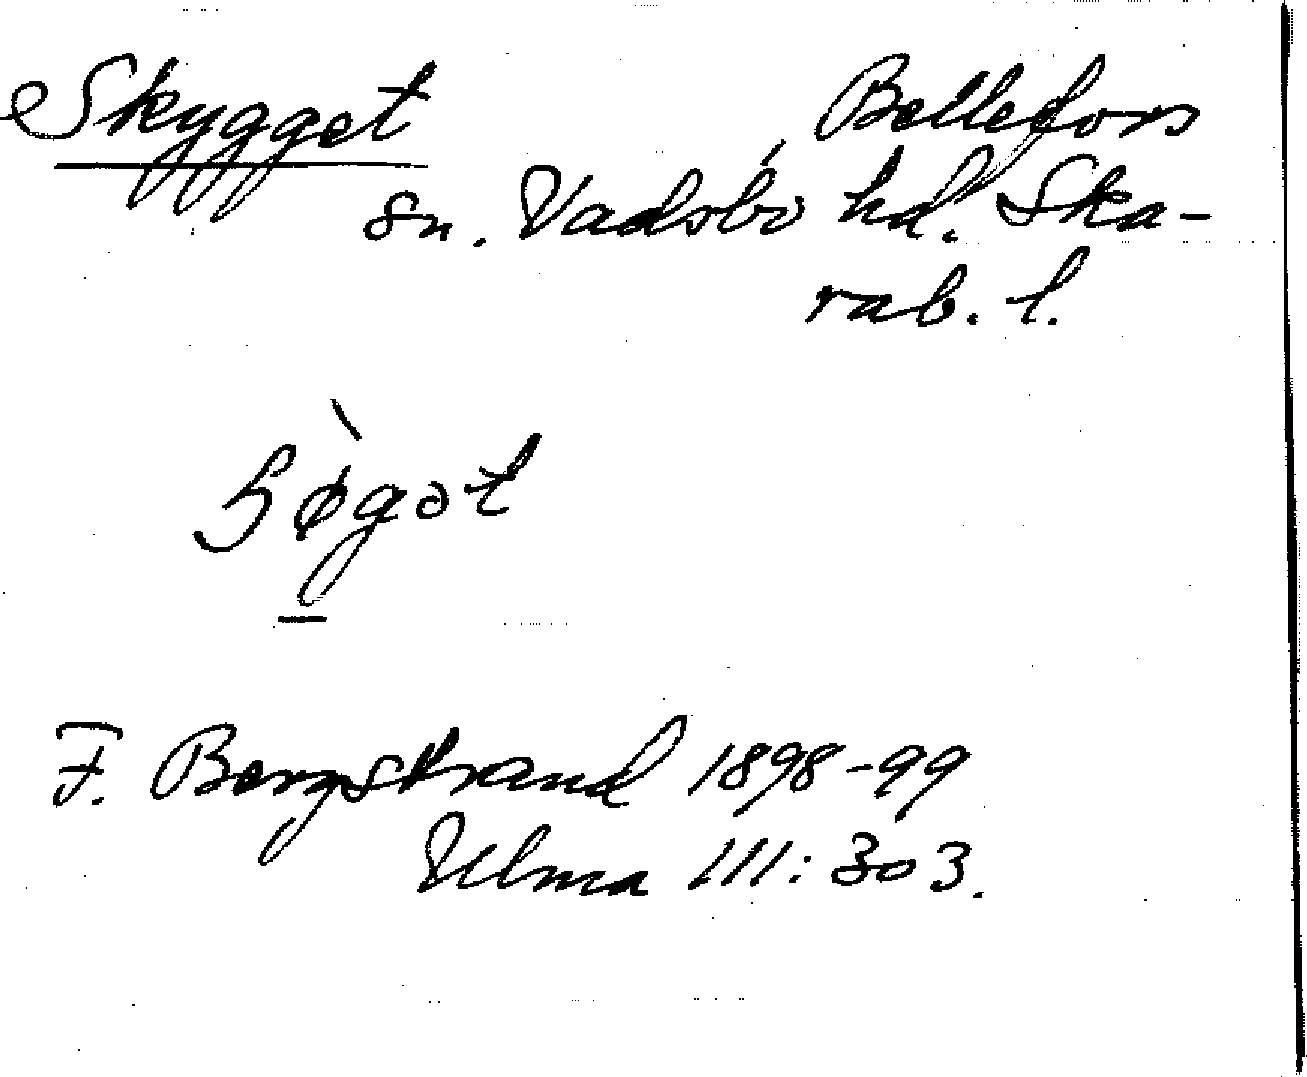 Skygget Bellefors
sn. Vadsbo hd. Ska-
rab. l.
F. Bergstrand 1898-99
Ulma 111: 303.